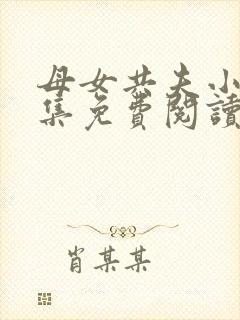 母女共夫小
集免費閱讀
肖某某